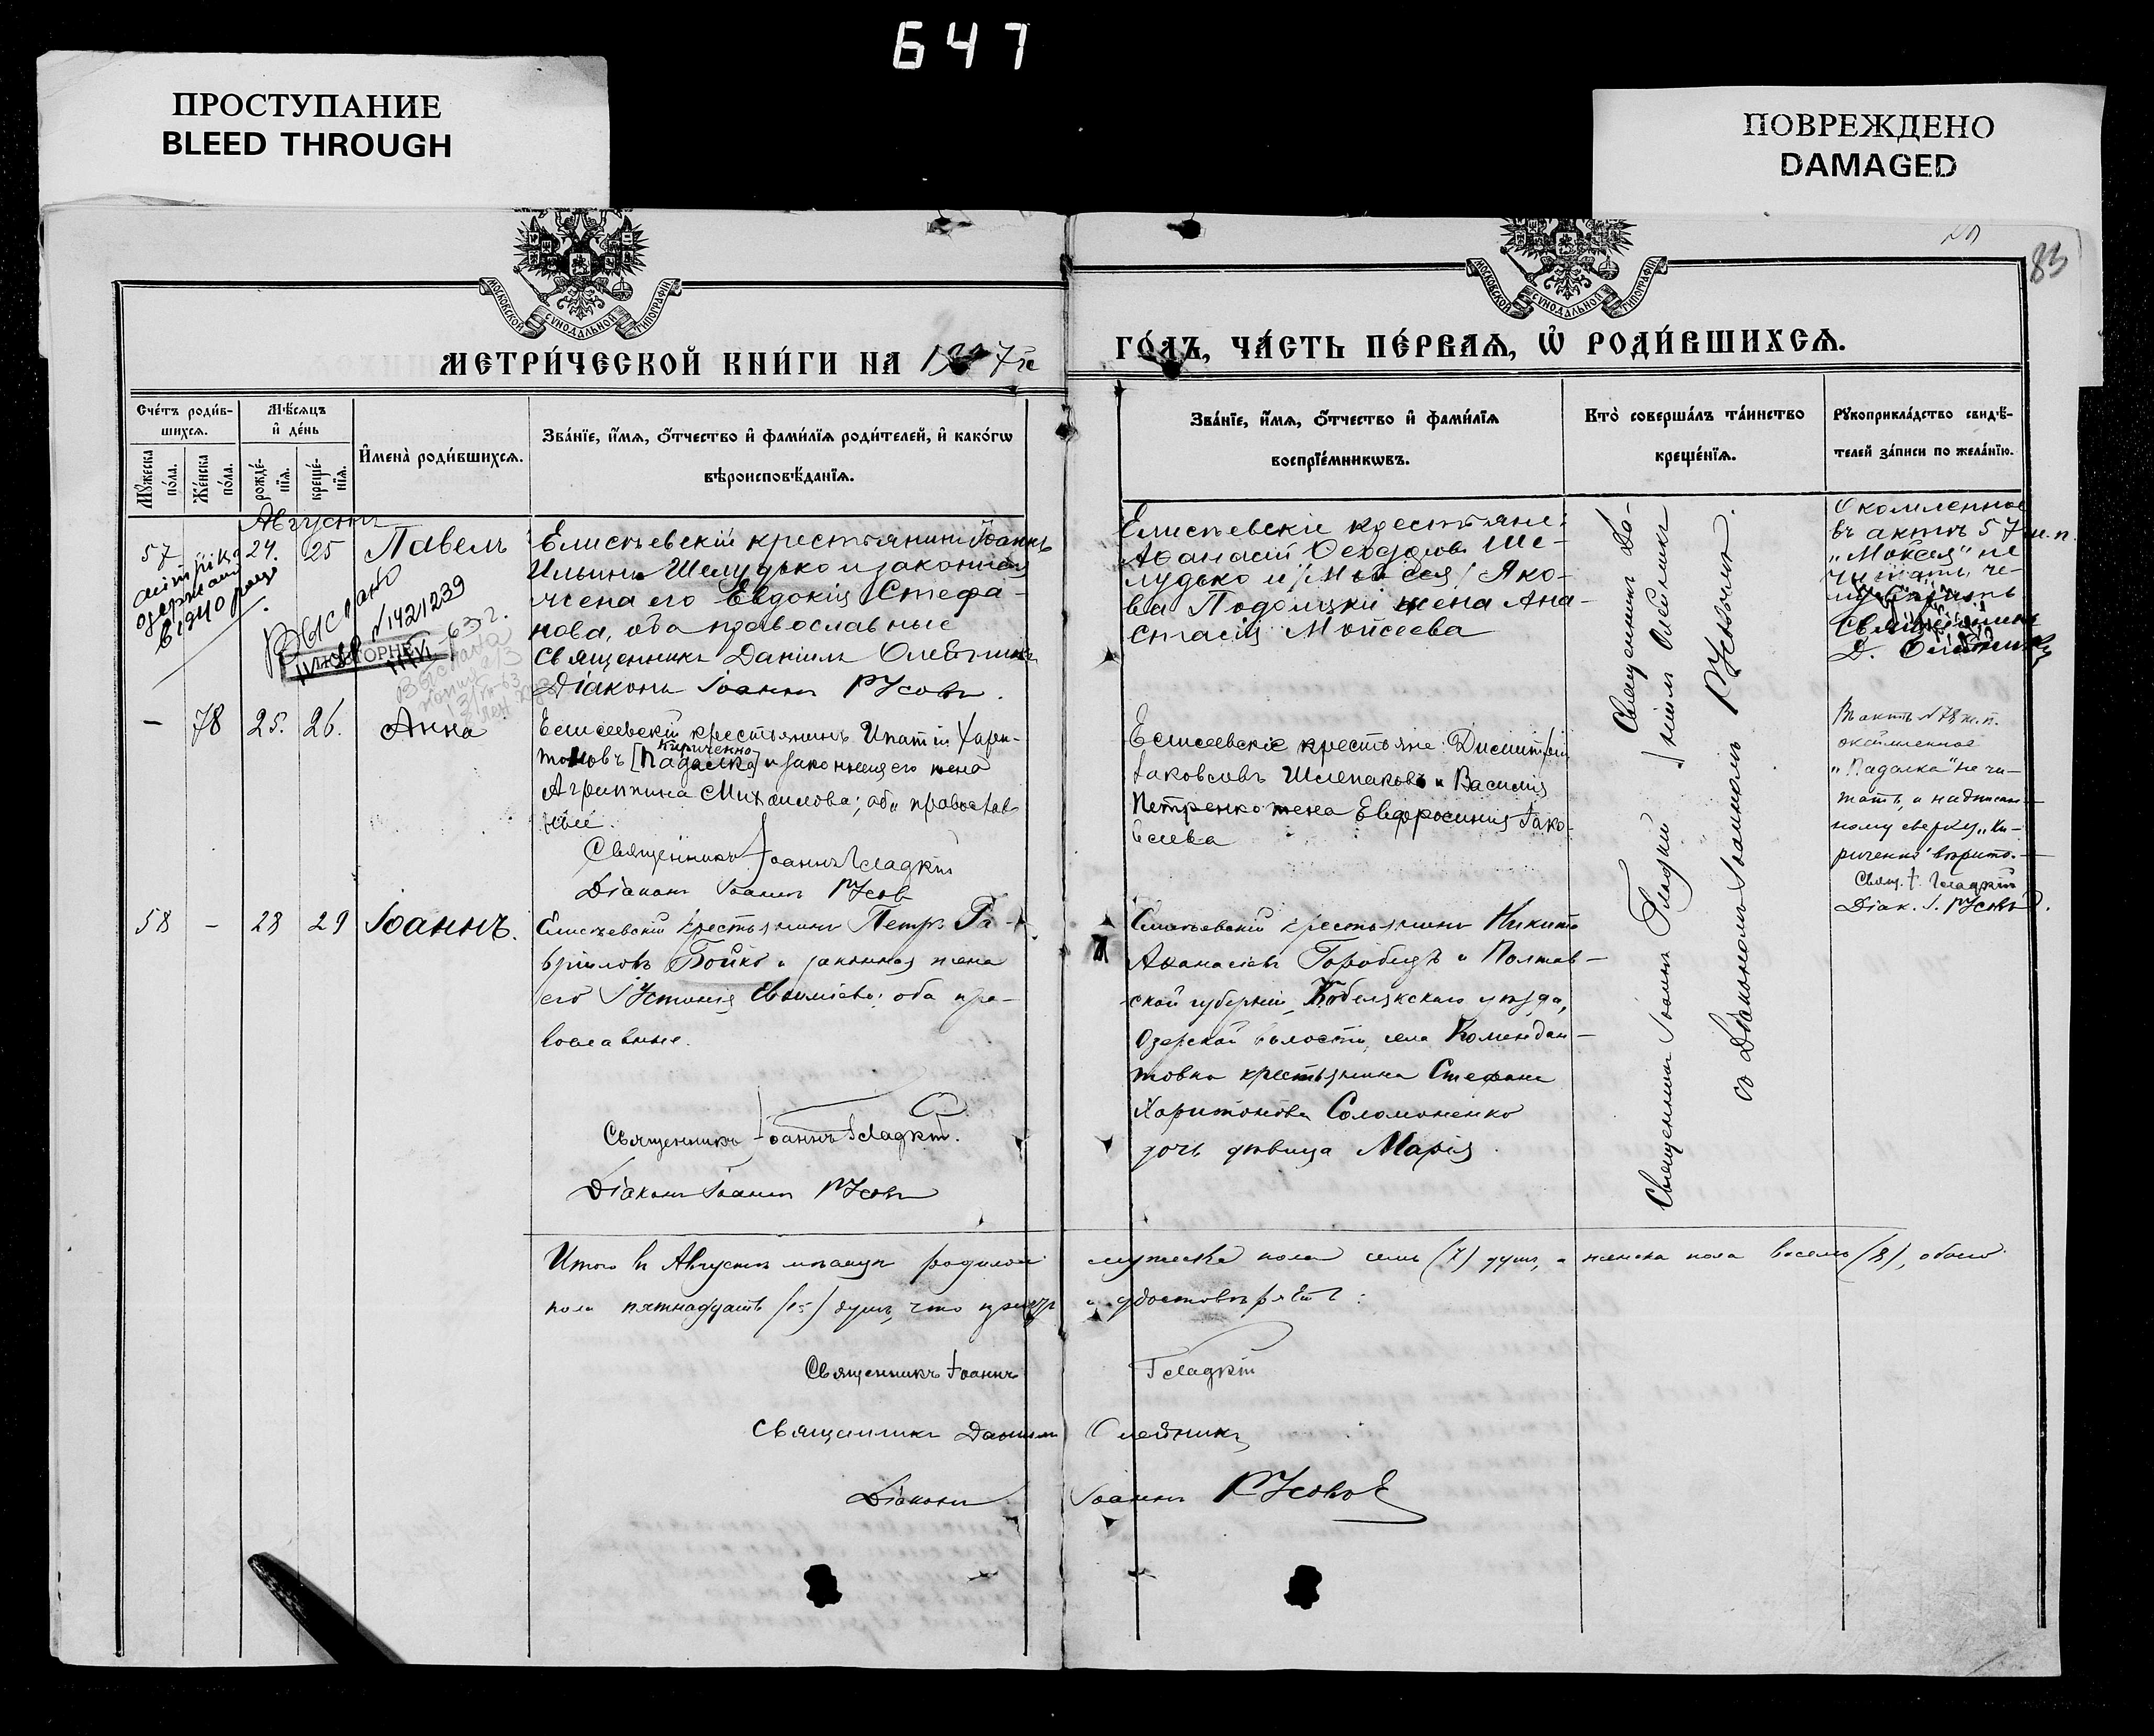 647
ПРОСТУПАНИЕ
BLEED THROUGH
ПОВРЕЖДЕНО
DAMAGED
83
МОСКОВСКОЙ СѴНОДАЛЬНОЙ ТИПОГРАФІИ
МОСКОВСКОЙ СѴНОДАЛЬНОЙ ТИПОГРАФІИ
МЕТРИ́ЧЕСКОЙ КНИ́ГИ НА
ГО́ДЪ, ЧА́СТЬ ПЕ́РВАѦ, Ѡ҆ РОДИ́ВШИХСѦ.
Сче́тъ роди́в-
шихсѧ.
Мꙋ́жеска
по́ла.
Же́нска
по́ла.
Мѣ́сѧцъ
и҆ де́нь
рожде́-
нїѧ.
креще́-
нїѧ.
И҆мена̀ роди́вшихсѧ.
Зва́нїе, и҆́мѧ, ѻ҆́тчество и҆ фами́лїѧ роди́телей, и҆ како́гѡ
вѣроисповѣ́данїѧ.
Зва́нїе, и҆́мѧ, ѻ҆́тчество и҆ фами́лїѧ
воспрїе́мникѡвъ.
Кто̀ соверша́лъ та́инство
креще́нїѧ.
Рꙋкоприкла́дство свидѣ́-
телей за́писи по жела́нїю.
Августъ
57 24. 25 Павелъ
Елисѣевскій крестьянинъ Іоаннъ
Ильинъ Шелудько и законная
жена его Евдокія Стефа-
нова, оба православные
Священникъ Даніилъ Олейникъ
Діаконъ Іоаннъ Русовъ.
Выслано
№1421239
Елисѣевскіе крестьяне:
Аѳанасій Ѳеодоровъ Ше-
лудько и /Моисея/ Яко-
ва Подолицкій жена Ана-
стасія Моисеева
въ актѣ 57 м.п.
„Моисея" не
читать
Священникъ
Д. Олейникъ
— 78 25. 26. Анна
Елисеевскій крестьянинъ Ипатій Хари-
Кириченко
тоновъ [Падалка] и законная его жена
Агриппина Михаилова; оба православ
ные.
Священникъ Іоаннъ Гладкій
Діаконъ Іоаннъ Русов
Елисеевскіе крестьяне: Димитрій
Іаковлевъ Шлепаковъ и Василія
Петренко жена Евфросинія Іако-
влева
Въ актѣ №78 ж.п.
окаймленное
„Падалка" не чи-
тать, а надписан-
ному сверху „Ки-
риченко" вѣрить.
Свящ. І. Гладкій
Діак. І. Русовъ.
58 — 28 29 Іоаннъ.
Елисѣевскій крестьянинъ Петръ Га-
вріиловъ Бойко и законная жена
его Іустинія Евѳиміева; оба пра-
вославные.
Священникъ Іоаннъ Гладкій.
Діаконъ Іоаннъ Русовъ
Елисѣевскій крестьянинъ Никита
Аѳанасіевъ Горобецъ и Полтав-
ской губерніи, Кобелякскаго уѣзда,
Озерской волости, села Комендан-
товка крестьянина Стефана
Харитонова Соломоненко
дочь дѣвица Марія
Священникъ Да-
ніилъ Олейникъ
Священникъ Іоаннъ Гладкій
со Діакономъ Іоанномъ Русовымъ.
Итого въ Августѣ мѣсяцѣ родилось мужеска пола семь (7) душъ, а женска пола восемь (8), обоего
пола пятнадцать (15) душъ, что и удостовѣряемъ:
Священникъ Іоаннъ Гладкій
Священникъ Даніилъ Олейникъ
Діаконъ Іоаннъ Русовъ